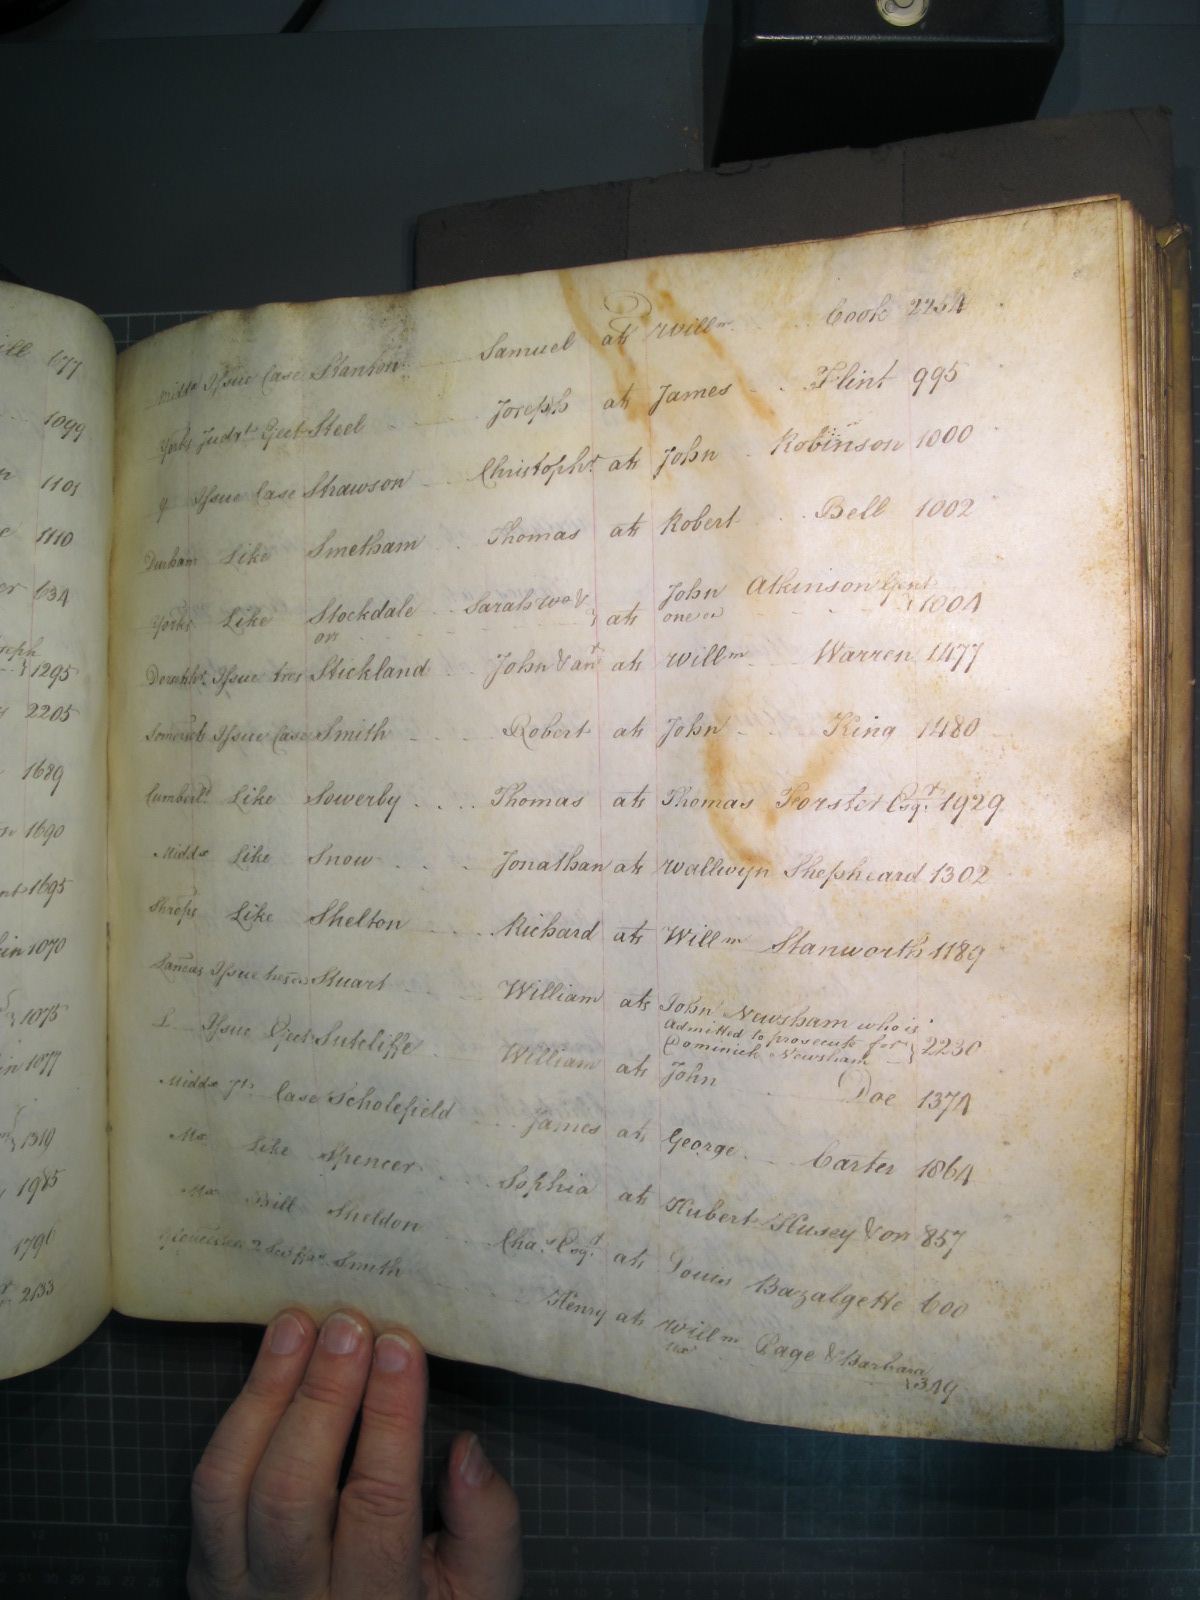 ill 677
1099
n 1101
e 1110
er 634
Joseph
1295
s 2205
1689
1690
nt 1695
in 1070
1075
in 1077
1319
1985
1796
2133
Midds Issue Case Stanton Samuel ats Willm Cook 2254
Yorks Judgt Eject Steel Joseph ats James Flint 995
Y Issue Case Strawson Christophr ats John Robinson 1000
Durham Like Smetham Thomas ats Robert Bell 1002
Yorks Like Stockdale Sarah Wow ats John Atkinson Gent
one &c 1004
Dorsetshr Issue tres Stickland John & anr ats Willm Warren 1477
Somerset Issue Case Smith Robert ats John King 1480
Cumberld Like Sowerby Thomas ats Thomas Forster Esqr 1929
Middx Like Snow Jonathan ats Wallwyn Shepheard 1302
Shrops Like Shelton Richard ats Willm Stanworth 1189
Lancas Issue Stuart William ats John Newsham who is
admitted to prosecute for
Dominick Newsham 2230
L Issue Eject Sutcliffe William ats John Doe 1374
Middx Case Scholefield James ats George Carter 1864
Mx Like Spencer Sophia ats Hubert Husey & or 857
Mx Bill Sheldon Chas Esqr ats Louis Bazalgette 600
Smith Henry ats Willm Page & Barbara
Ux 349